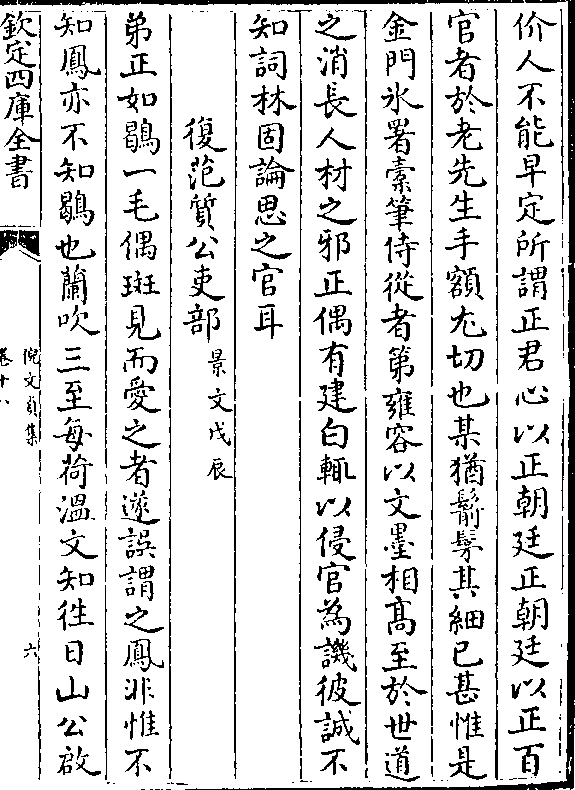 价人不能早定所謂正君心以正朝廷正朝廷以正百
官者於老先生手額尤切也某猶鬅鬙其細已甚惟是
金門氷署橐筆侍從者第雍容以文墨相髙至於世道
之消長人材之邪正偶有建白輒以侵官為譏彼誠不
知詞林固論思之官耳
復范質公吏部景文戊辰
弟正如鶡一毛偶斑見而愛之者遂誤謂之鳳非惟不
知鳳亦不知鶡也蘭吹三至每荷溫文知徃日山公啟
欽定四庫全書
倪文貞集
卷十八
六